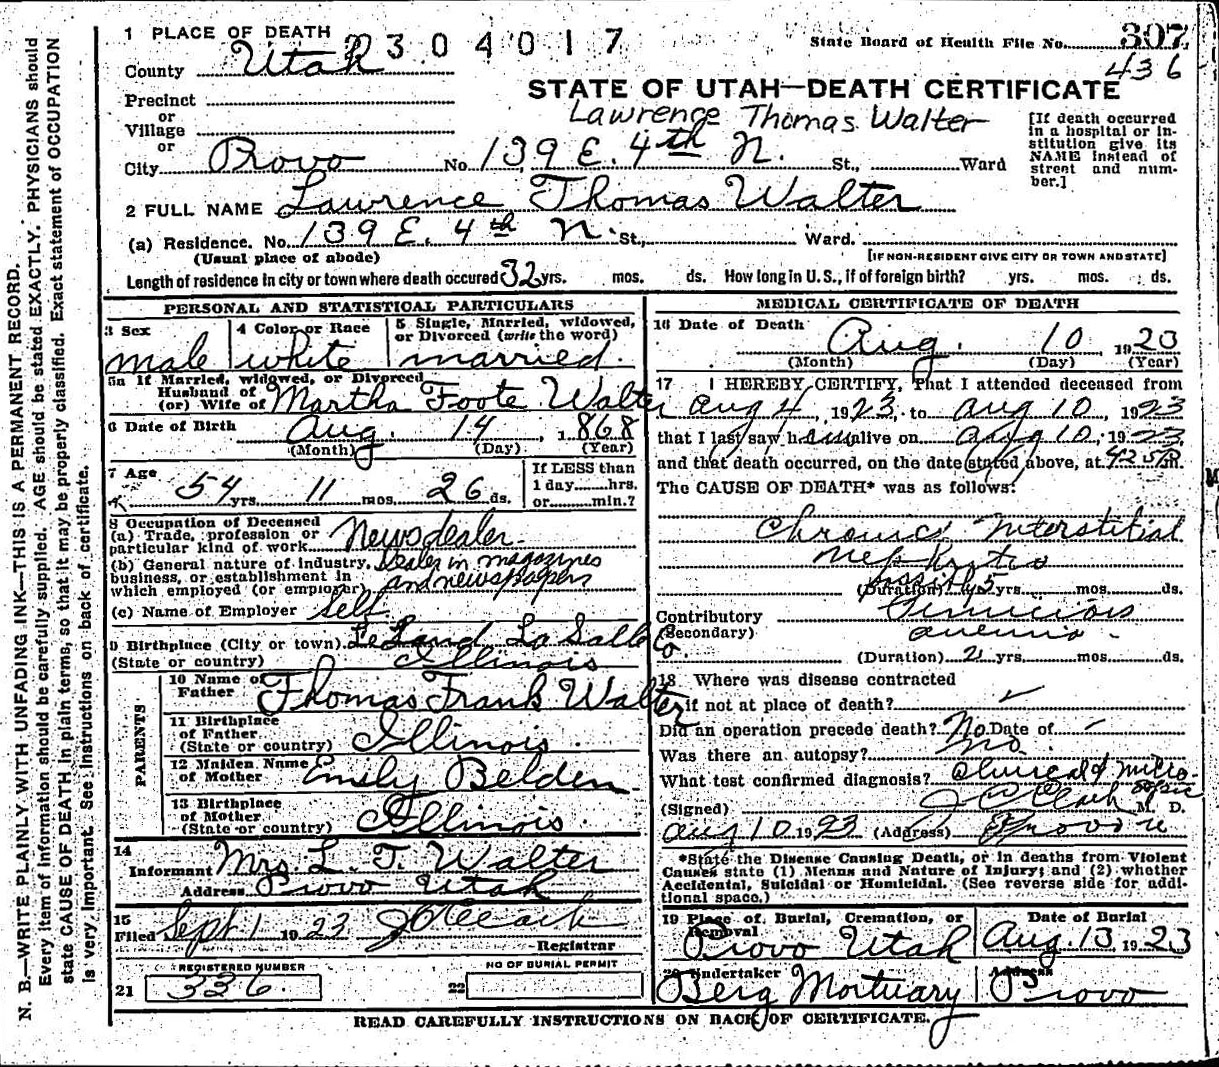 N. B.—WRITE PLAINLY WITH UNFADING INK—THIS IS A PERMANENT RECORD.
Every item of information should be carefully supplied. AGE should be stated EXACTLY. PHYSICIANS should
state CAUSE OF DEATH in plain terms, so that it may be properly classified. Exact statement of OCCUPATION
is very important. See instructions on back of certificate.
1 PLACE OF DEATH 2304017 State Board of Health File No. 307
County Utah 436
Precinct STATE OF UTAH—DEATH CERTIFICATE
or
Village Lawrence Thomas Walter
or
City Provo No. 139 E. 4th N. St., Ward
[If death occurred
in a hospital or in-
stitution give its
NAME instead of
street and num-
ber.]
2 FULL NAME Lawrence Thomas Walter
(a) Residence. No. 139 E. 4th N. St., Ward.
(Usual place of abode) [IF NON-RESIDENT GIVE CITY OR TOWN AND STATE]
Length of residence in city or town where death occured 32 yrs. mos. ds. How long in U.S., if of foreign birth? yrs. mos. ds.
PERSONAL AND STATISTICAL PARTICULARS
3 Sex male
4 Color or Race white
5 Single, Married, widowed,
or Divorced (write the word)
married.
5a If Married, widowed, or Divorced
Husband of
(or) Wife of Martha Foote Walter
6 Date of Birth Aug. 14, 1868
(Month) (Day) (Year)
7 Age 54 yrs. 11 mos. 26 ds.
If LESS than
1 day hrs.
or min.?
8 Occupation of Deceased
(a) Trade, profession or
particular kind of work Newsdealer
(b) General nature of industry, Dealer in magazines
business, or establishment in and newspapers
which employed (or employer)
(c) Name of Employer Self
9 Birthplace (City or town) Leland La Salle Co.
(State or country) Illinois
PARENTS
10 Name of
Father Thomas Frank Walter
11 Birthplace
of Father
(State or country) Illinois.
12 Maiden Name
of Mother Emily Belden
13 Birthplace
of Mother
(State or country) Illinois.
14
Informant Mrs. L. T. Walter
Address Provo Utah
15
Filed Sept 1 1923 J
Registrar
REGISTERED NUMBER
21 336.
NO OF BURIAL PERMIT
22
MEDICAL CERTIFICATE OF DEATH
16 Date of Death Aug. 10 1923
(Month) (Day) (Year)
17 I HEREBY CERTIFY, That I attended deceased from
Aug 4, 1923, to Aug 10, 1923
that I last saw him alive on Aug 10, 1923,
and that death occurred, on the date stated above, at 425P m.
The CAUSE OF DEATH* was as follows:
Chronic Interstitial
Nephritis
possibly
(Duration) 5 yrs. mos. ds.
Contributory Pernicious
(Secondary) anemia.
(Duration) 2 yrs. mos. ds.
18 Where was disease contracted
if not at place of death?
Did an operation precede death? No. Date of –
Was there an autopsy? No
What test confirmed diagnosis? Clinical & micro-
scopic
(Signed) J M. D.
Aug 10 1923 (Address) Provo U
*State the Disease Causing Death, or in deaths from Violent
Causes state (1) Means and Nature of Injury; and (2) whether
Accidental, Suicidal or Homicidal. (See reverse side for addi-
tional space.)
19 Place of Burial, Cremation, or
Removal
Provo Utah
Date of Burial
Aug 13 1923
20 Undertaker
Berg Mortuary
Address
Provo
READ CAREFULLY INSTRUCTIONS ON BACK OF CERTIFICATE.